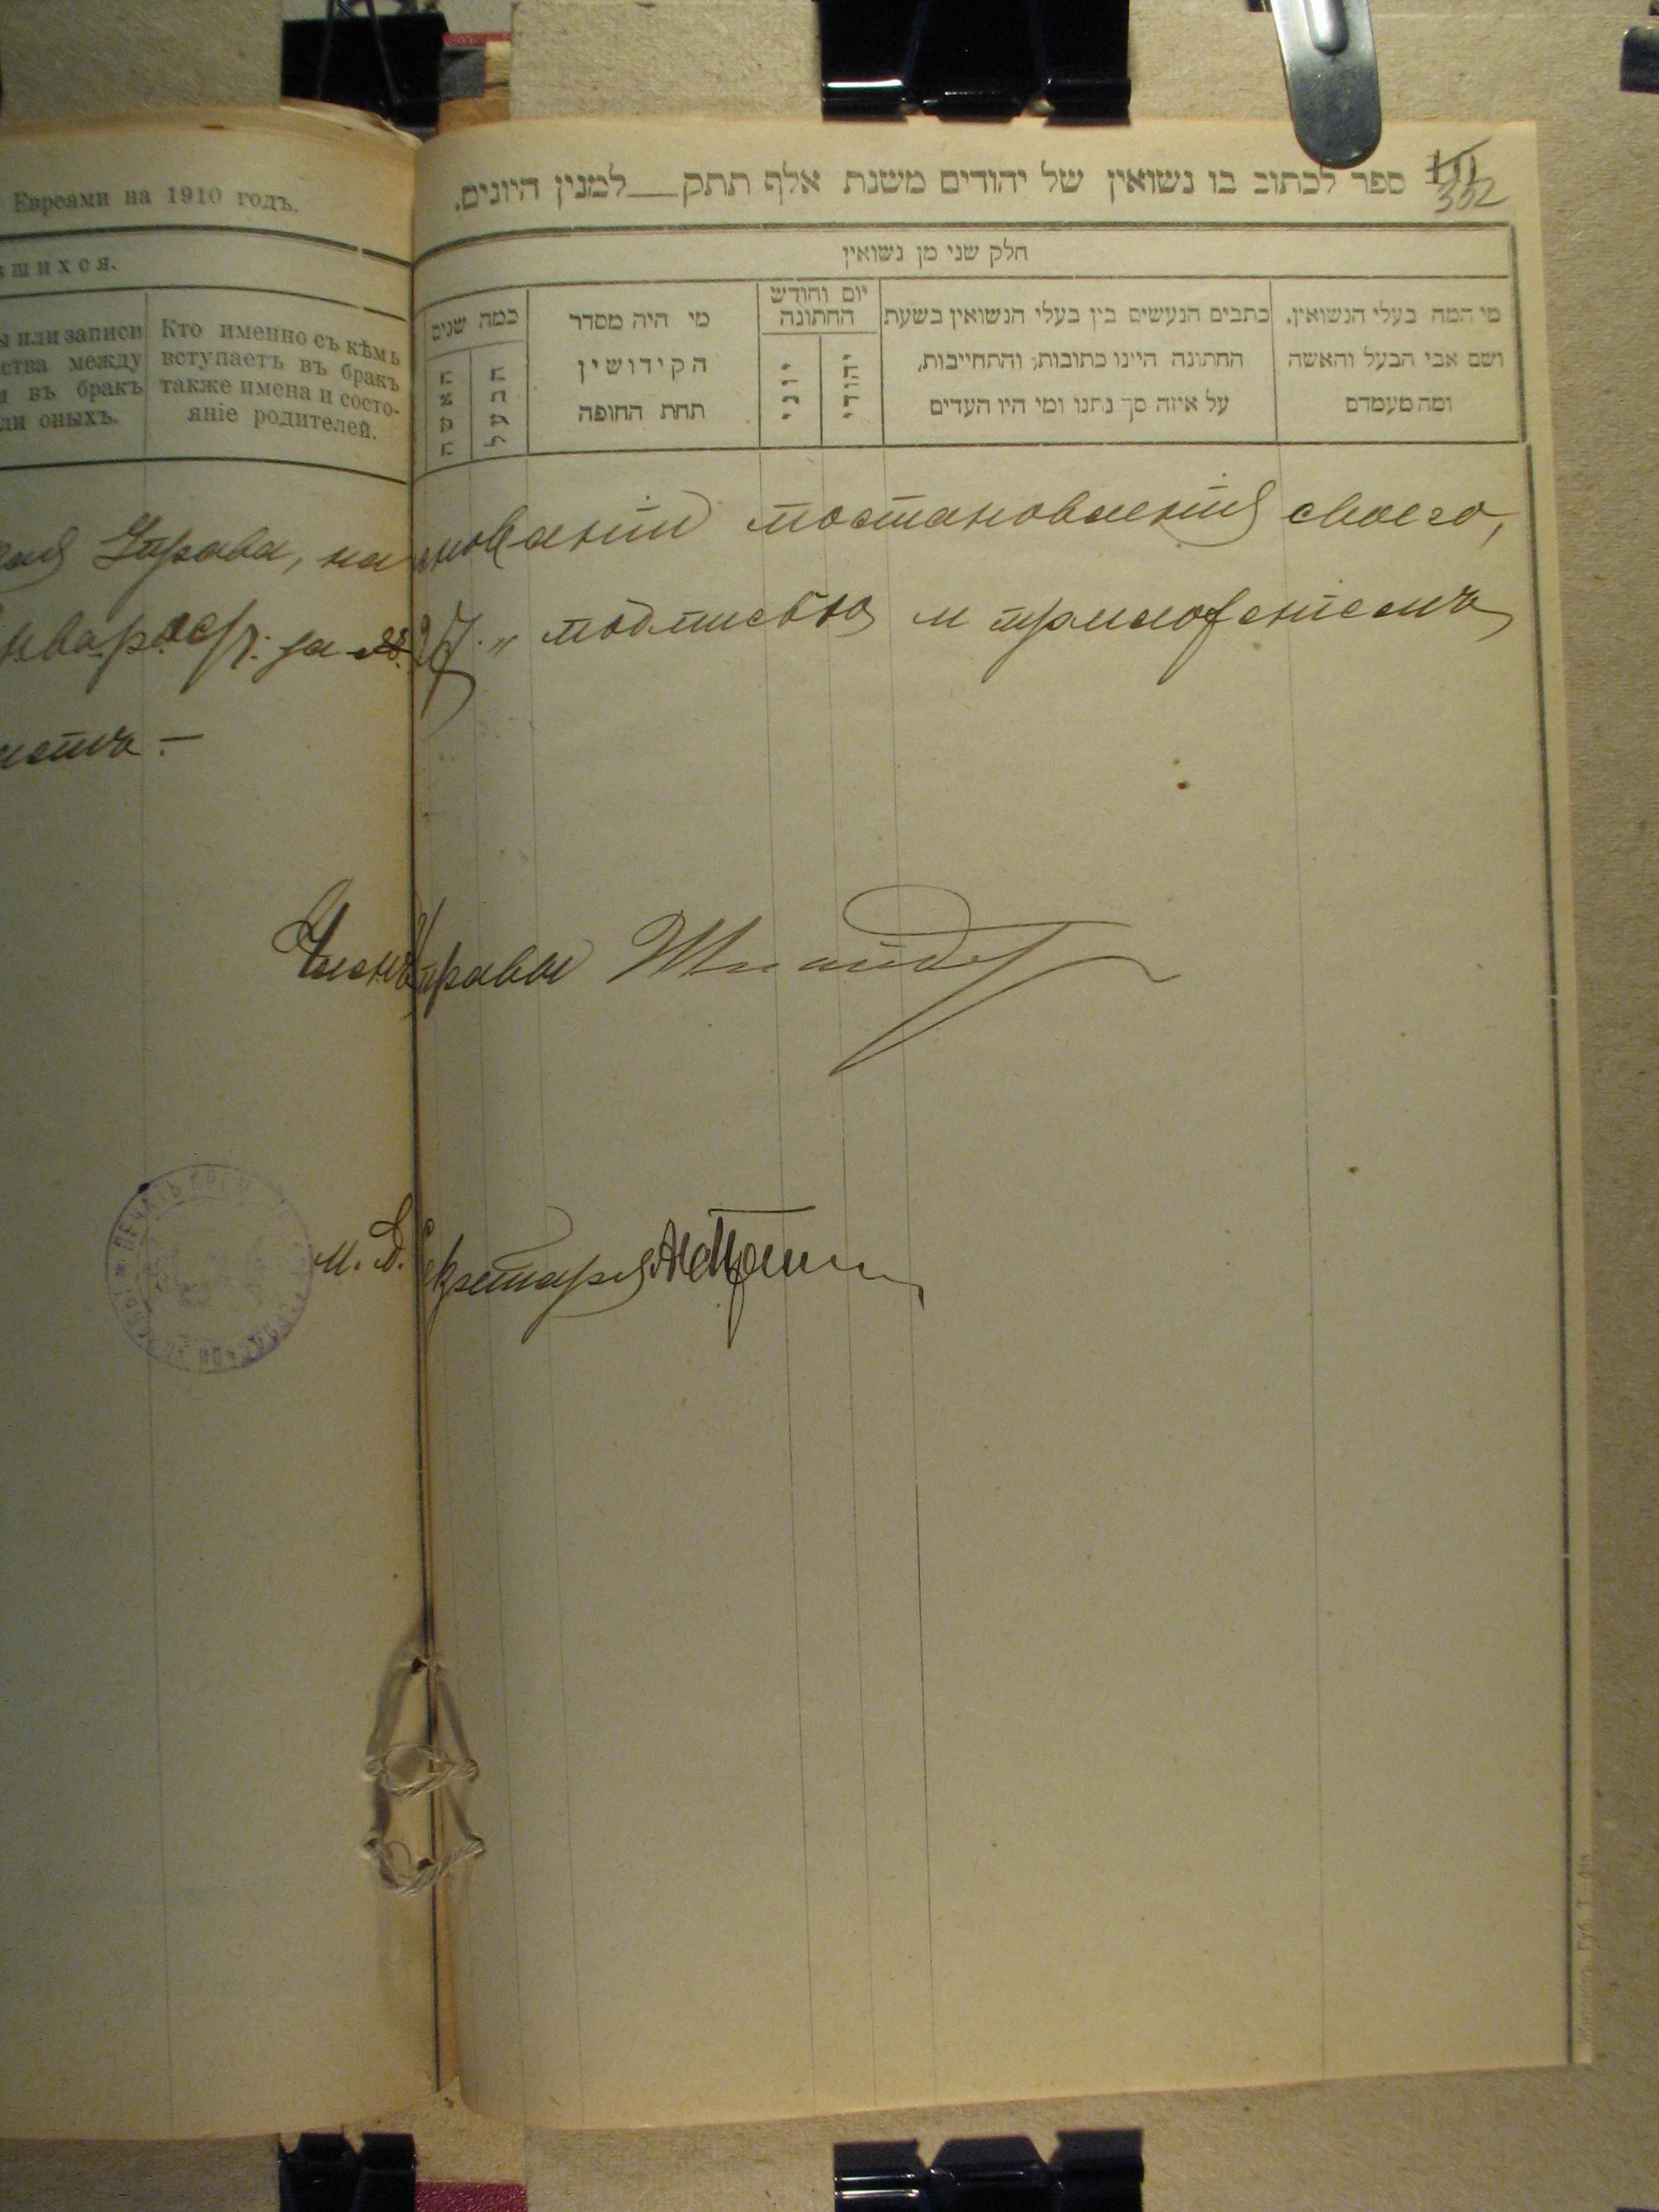 Евреями на 1910 годъ.
вшихся.
ы или записи
ства между
и въ бракъ
ли оныхъ.
Кто именно съ кѣмъ
вступаетъ въ бракъ
также имена и состо-
яніе родителей.
ספר לכתוב בו נשואין של יהודים משנת אלף תתק___למנין היונים.
332
חלק שני מן נשואין
מי המה בעלי הנשואין.
ושם אבי הבעל והאשה
ומה מעמדם
כתבים הנעשים בין בעלי הנשואין בשעת
החתונה היינו כתובות, והתחייבות,
על איזה סך נתנו ומי היו העדים
יום וחודש
החתונה
יהודי
יוני
מי היה מסדר
הקידושין
תחת החופה
כמה שנים
הבעל
האשה
Управа, на основаніи постановленія своего,
за № 27. подписью и приложеніемъ
Членъ Управы
И. д. Секретаря
ПЕЧАТЬ